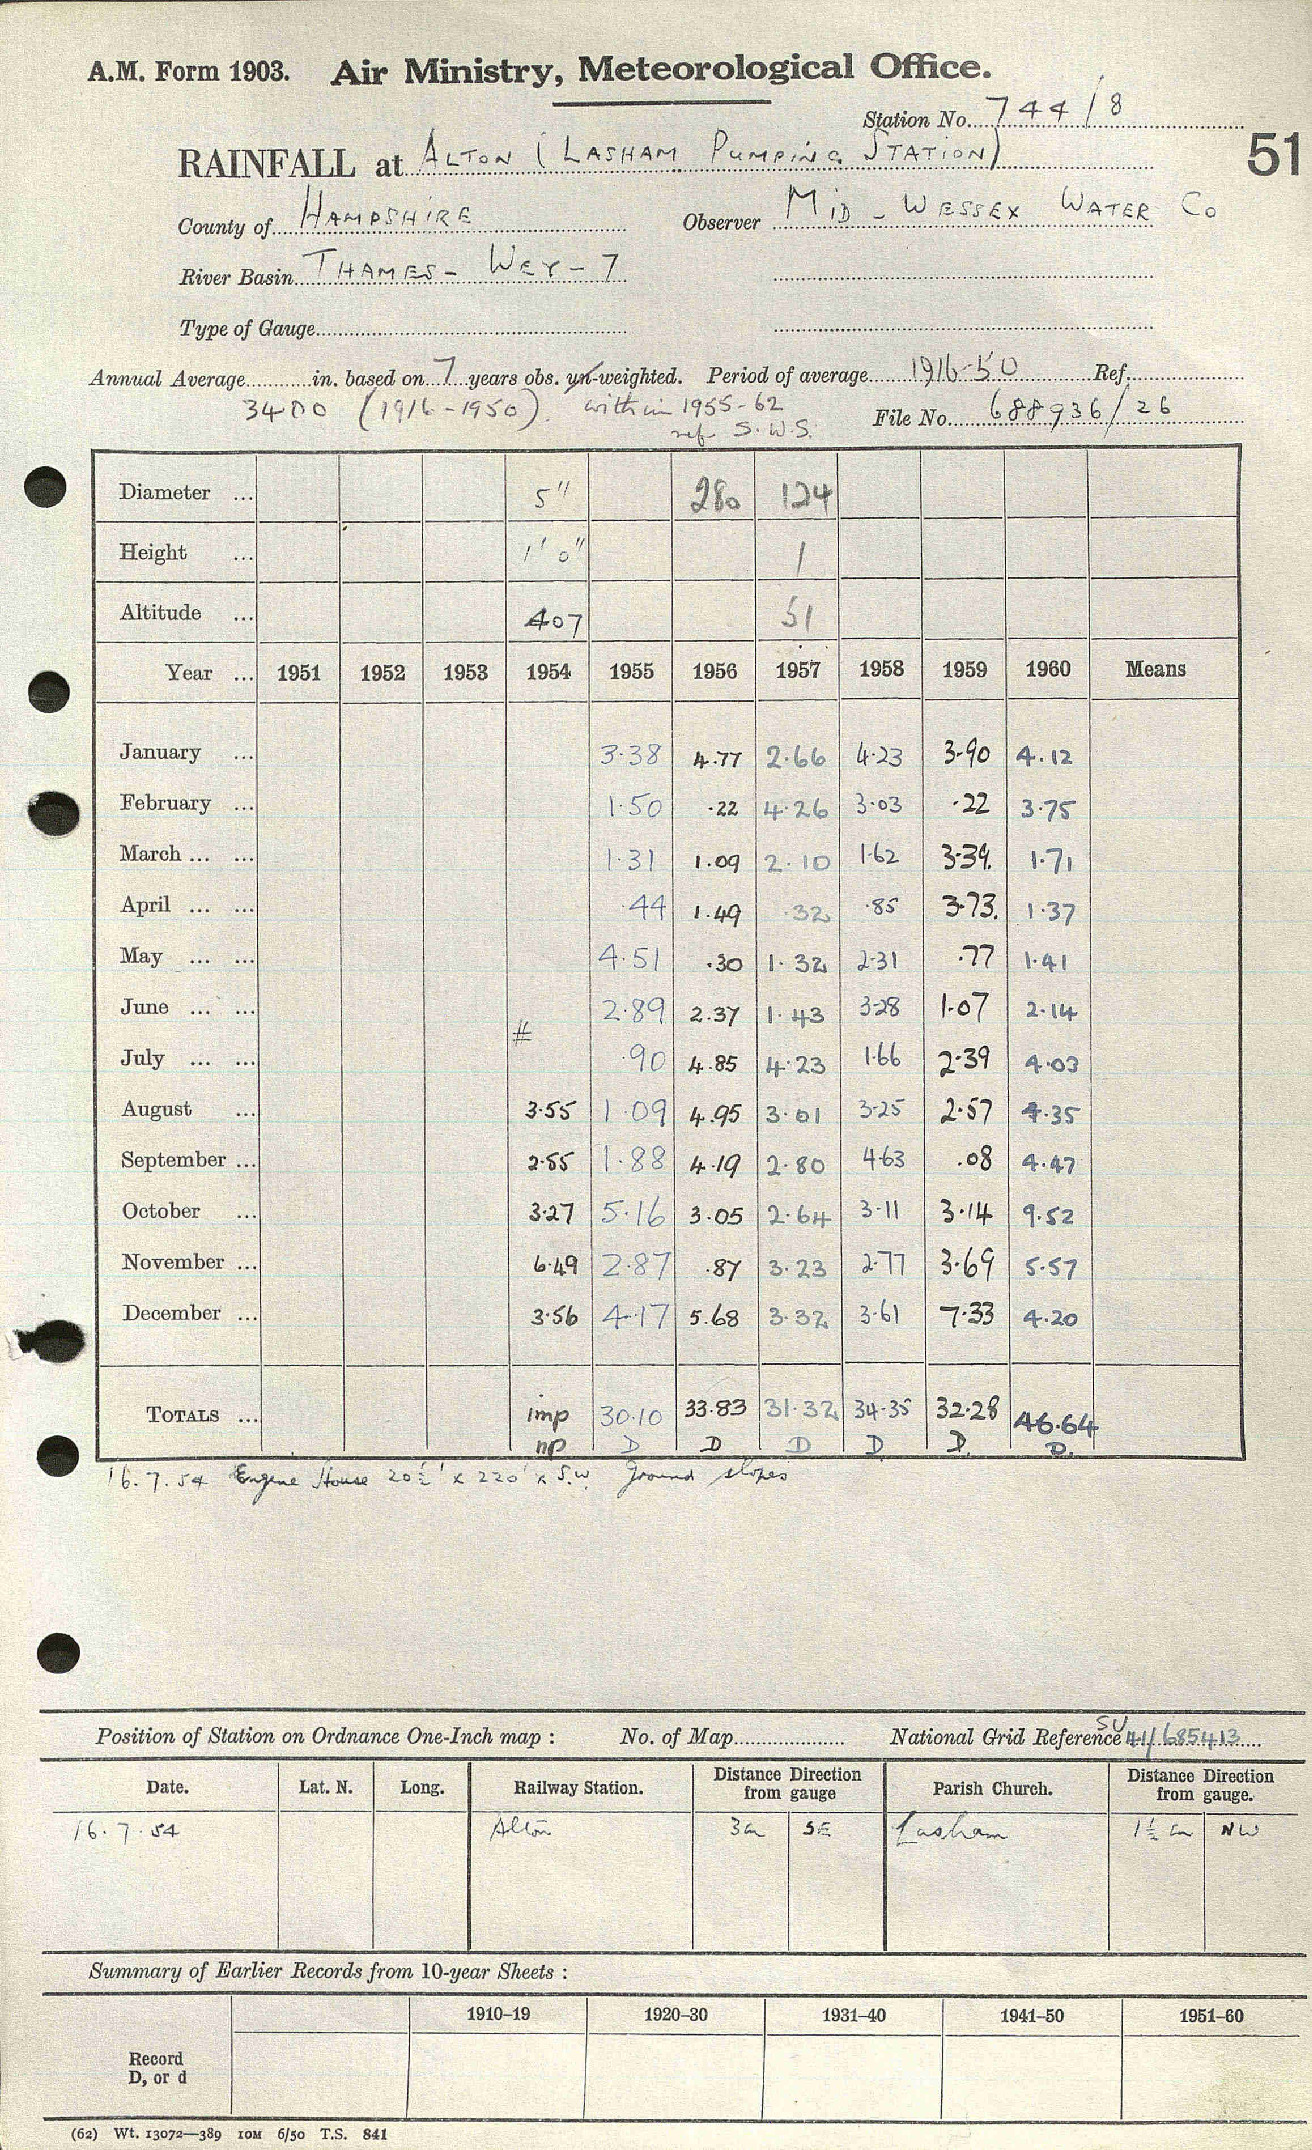 A.M. Form 1903. Air Ministry, Meteorological Office.
Station No. 744/8
RAINFALL at ALTON (LASHAM PUMPING STATION)
51
County of HAMPSHIRE Observer MID-WESSEX WATER Co
River Basin THAMES - WEY - 7
Type of Gauge
Annual Average in. based on 7 years obs. un-weighted. Period of average 1916-50 Ref.
3400 (1916-1950). within 1955-62 File No. 688936/26
ref S.W.S.
Diameter ... 5" 280 124
Height ... 1' 0" 1
Altitude ... 407 51
Year ... 1951 1952 1953 1954 1955 1956 1957 1958 1959 1960 Means
January ... 3.38 4.77 2.66 4.23 3.90 4.12
February ... 1.50 .22 4.26 3.03 .22 3.75
March ... ... 1.31 1.09 2.10 1.62 3.39. 1.71
April ... ... .44 1.49 .32 .85 3.73. 1.37
May ... ... 4.51 .30 1.32 2.31 .77 1.41
June ... ... 2.89 2.37 1.43 3.28 1.07 2.14
#
July ... ... .90 4.85 4.23 1.66 2.39 4.03
August ... 3.55 1.09 4.95 3.01 3.25 2.57 4.35
September ... 2.55 1.88 4.19 2.80 4.63 .08 4.47
October ... 3.27 5.16 3.05 2.64 3.11 3.14 9.52
November ... 6.49 2.87 .87 3.23 2.77 3.69 5.57
December ... 3.56 4.17 5.68 3.32 3.61 7.33 4.20
TOTALS ... imp 30.10 33.83 31.32 34.35 32.28 46.64
np D D D D D. D.
16.7.54 Engine House 20½' x 220' x S.W. Ground slopes
Position of Station on Ordnance One-Inch map : No. of Map National Grid Reference SU 41/685413
Date. Lat. N. Long. Railway Station. Distance from gauge Direction Parish Church. Distance from gauge. Direction
16.7.54 Alton 3m SE Lasham 1½ m NW
Summary of Earlier Records from 10-year Sheets :
1910–19 1920–30 1931–40 1941–50 1951–60
Record
D, or d
(62) Wt. 13072—389 10M 6/50 T.S. 841